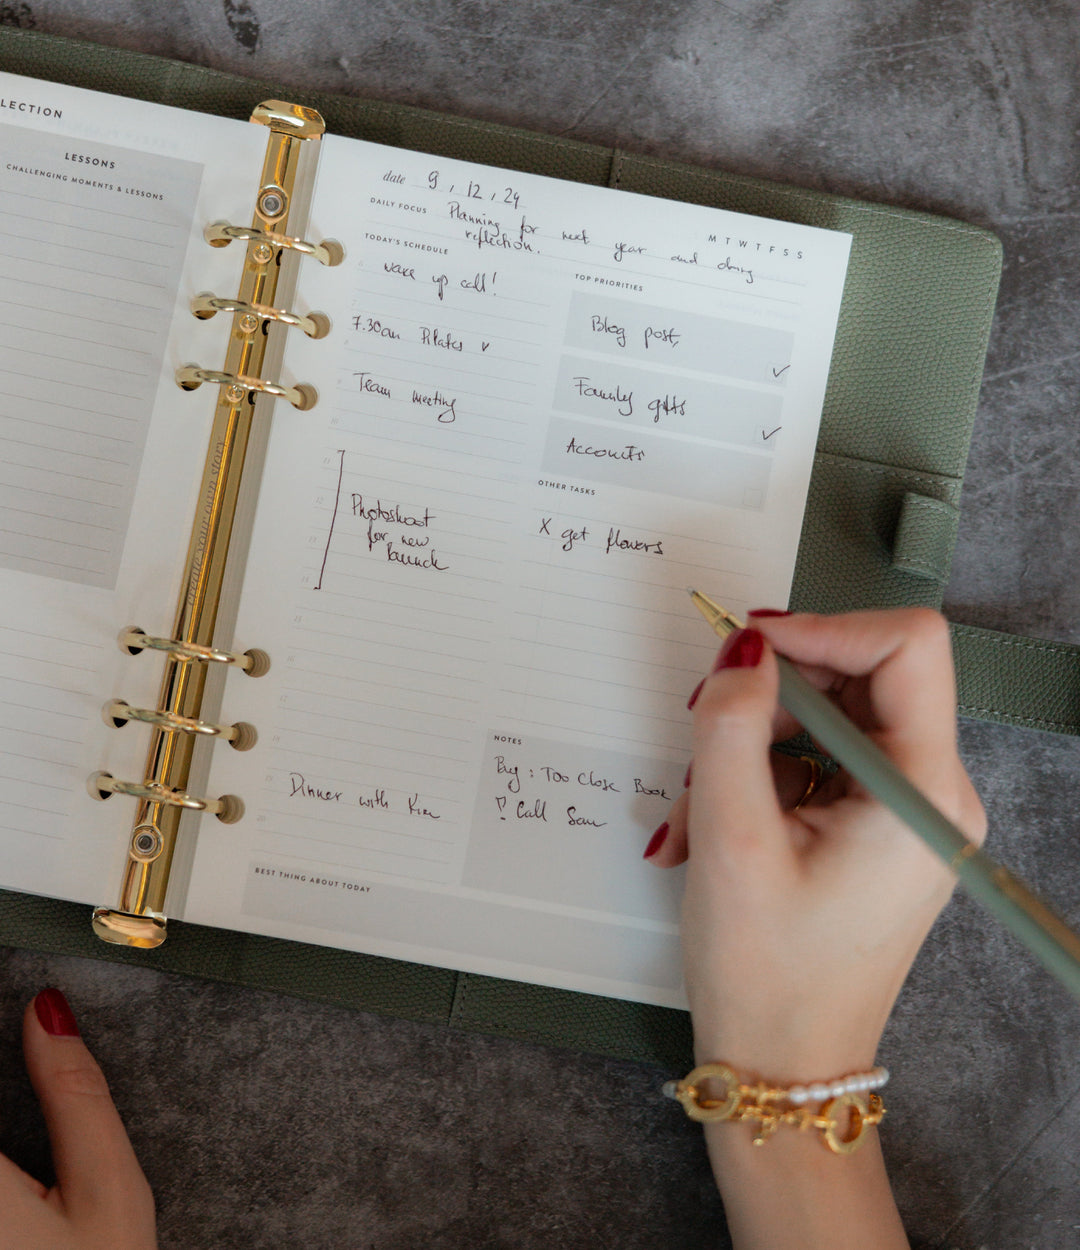 LECTION
LESSONS
CHALLENGING MOMENTS & LESSONS
create your own story
date 9, 12, 24
M T W T F S S
DAILY FOCUS Planning for next year and doing
reflection.
TODAY'S SCHEDULE
wake up call!
7.30am Pilates
Team meeting
Photoshoot
for new
launch
Dinner with Kim
TOP PRIORITIES
Blog post,
Family gifts
Accounts
OTHER TASKS
X get flowers
NOTES
: Too Close Book
! Call Sam
BEST THING ABOUT TODAY